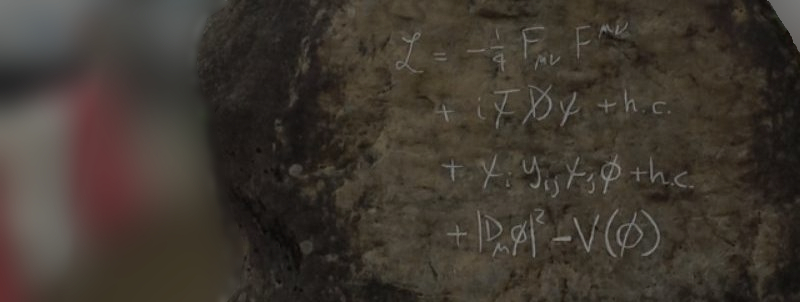 ℒ = -¼ F_μν F^μν
+ iψ̄D̸ψ + h.c.
+ χ_i y_ij χ_j ϕ + h.c.
+ |D_μ ϕ|² - V(ϕ)